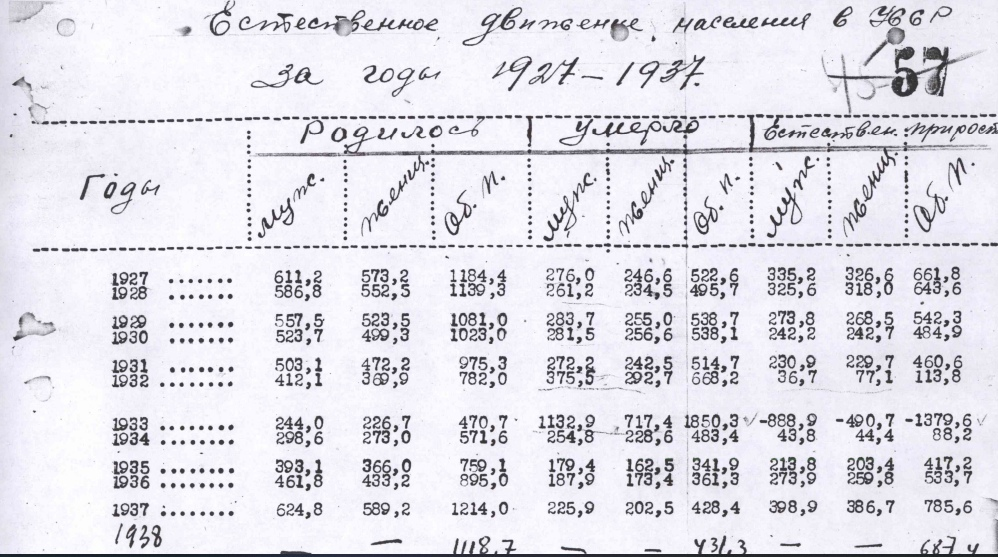 Естественное движение населения в УССР
за годы 1927–1937.
45 57
Родилось Умерло Естествен. прирост
Годы мужс. женщ. Об. п. мужс. женщ. Об. п. мужс. женщ. Об. п.
1927 ....... 611,2 573,2 1184,4 276,0 246,6 522,6 335,2 326,6 661,8
1928 ....... 586,8 552,5 1139,3 261,2 234,5 495,7 325,6 318,0 643,6
1929 ....... 557,5 523,5 1081,0 283,7 255,0 538,7 273,8 268,5 542,3
1930 ....... 523,7 499,3 1023,0 281,5 256,6 538,1 242,2 242,7 484,9
1931 ....... 503,1 472,2 975,3 272,2 242,5 514,7 230,9 229,7 460,6
1932 ........ 412,1 369,9 782,0 375,5 292,7 668,2 36,7 77,1 113,8
1933 ....... 244,0 226,7 470,7 1132,9 717,4 1850,3 -888,9 -490,7 -1379,6
1934 ....... 298,6 273,0 571,6 254,8 228,6 483,4 43,8 44,4 88,2
1935 ........ 393,1 366,0 759,1 179,4 162,5 341,9 213,8 203,4 417,2
1936 ........ 461,8 433,2 895,0 187,9 173,4 361,3 273,9 259,8 533,7
1937 ........ 624,8 589,2 1214,0 225,9 202,5 428,4 398,9 386,7 785,6
1938 — 1118,7 — — 431,3 — — 687,4